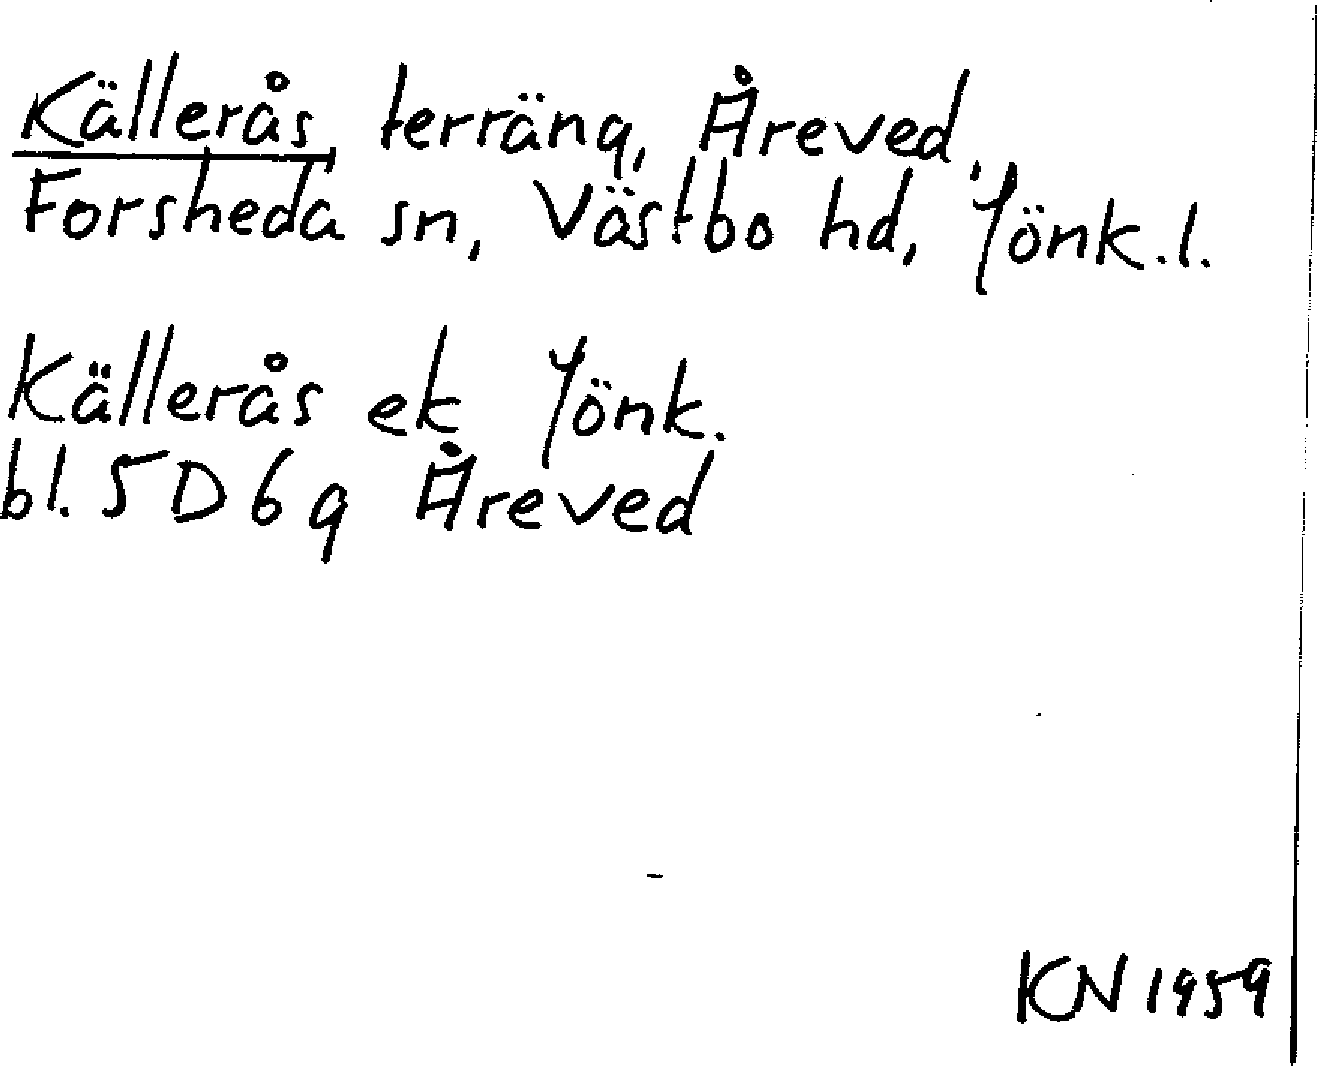 Källerås, terräng, Åreved,
Forsheda sn, Västbo hd, Jönk.l.
Källerås ek Jönk.
bl. 5D6g Åreved
KN 1959